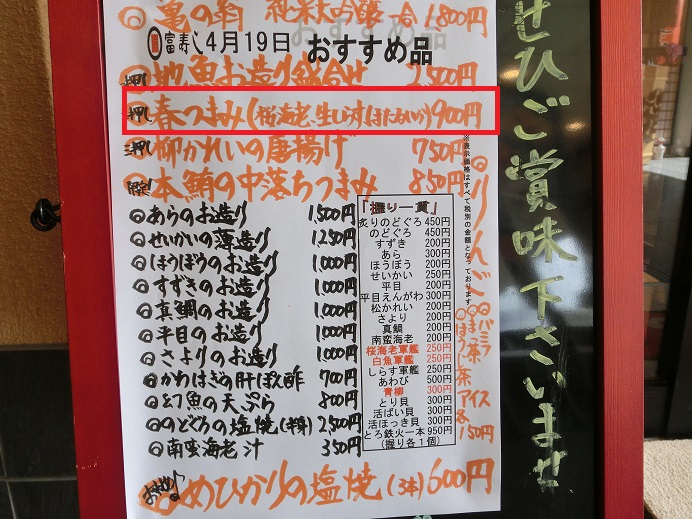 亀の翁 純米大吟醸 一合 1,800円
富寿し 4月19日 おすすめ品
押し 地魚お造り盛合せ 2,500円
押し 春つまみ(桜海老、生しらす、ほたるいか) 900円
押し 柳かれいの唐揚げ 750円
本鮪の中落ちつまみ 850円
あらのお造り 1,500円
せいかいの薄造り 1,250円
ほうぼうのお造り 1,000円
すずきのお造り 1,000円
真鯛のお造り 1,000円
平目のお造り 1,000円
さよりのお造り 1,000円
かわはぎの肝ぽん酢 700円
幻魚の天ぷら 800円
のどぐろの塩焼(半身) 2,500円
南蛮海老汁 350円
めひかりの塩焼(3本) 600円
「握り一貫」
炙りのどぐろ 450円
のどぐろ 450円
すずき 200円
あら 300円
ほうぼう 200円
せいかい 250円
平目 200円
平目えんがわ 300円
松かれい 200円
さより 200円
真鯛 200円
南蛮海老 200円
桜海老軍艦 250円
白魚軍艦 250円
しらす軍艦 250円
あわび 500円
青柳 300円
とり貝 300円
活ばい貝 300円
活ほっき貝 300円
とろ鉄火一本 950円
(握り各1個)
※表示価格はすべて税別の金額となっております
りんご
バニラ
抹茶
ほうじ茶
アイス
各150円
ぜひご賞味下さいませ